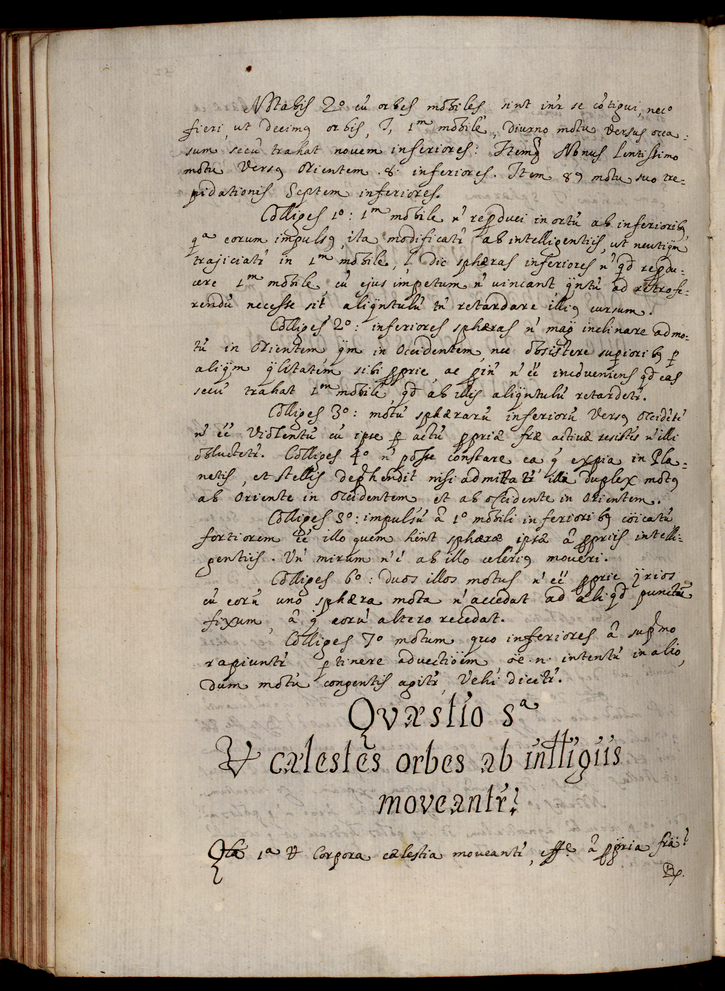 Notabis 2º cū orbes mobiles sint inr se cōtigui, necº
fieri, ut decimq orbis, l, 1m mobilē, diurno motu versus occa:
sum secū trahat novem inferiores: Itemq Nonus lentissimo
motu versq orientem .8. inferiores. Item 8q motu suo tre-
pidationis septem inferiores.
Colliges 1º: 1m mobile n' repduci in ortū ab inferioribq
qa eorum impulsq ita modificatr ab intelligentiis ut neutiqm
trajiciatr in 1m mobile, l dic sphæras inferiores n' qd repdu-
cere 1m mobile cū ejus impetum n' vincant qntū ad retrofe-
rendū necesse sit aliqntulū tn retardare illiq cursum.
Colliges 2º: inferiores sphæras n' magis inclinare ad mo-
tū in orientem qm in occidentem, nec obsistere superioribq p
aliqm qlitatem sibi ppriē ac piñ n' eē inconveniens qd eas
secū trahat 1m mobile qd ab illis aliqntulū retardetr.
Colliges 3º: motū sphærarū inferiorū versq occidētē
n' eē violentū cū ipsæ p actū ppriæ fræ activæ resistēs n' illi
obluctētr. Colliges 4º n' posse constare ea q expia in Pla-
netis, et stellis dephendit nisi admittatr illē duplex motq
ab oriente in occidentem et ab occidente in orientem.
Colliges 5º: impulsū â 1º mobili inferioribq cōicatū
fortiorem eē illo quem hēnt sphæræ ipsæ â ppriis intelli-
gentiis. Un' mirum n' ē ab illo celeriq moveri.
Colliges 6º: duos illos motus n' eē pprie qrios
cū eorū uno sphæra mota n' accedat ad aliqd punctū
fixum, â q eorū altero recedat.
Colliges 7º motum quo inferiores â supmo
rapiuntr ptinere ad vectiōem oē n. intentū in alio,
dum motū congentis agitr, vehi dicetr.
Quæstio 5a
V cælestes orbes ab intlligiis
moveantr?
Qla 1a V Corpora cælestia moveantr, effe. â ppria frā?
Rx.